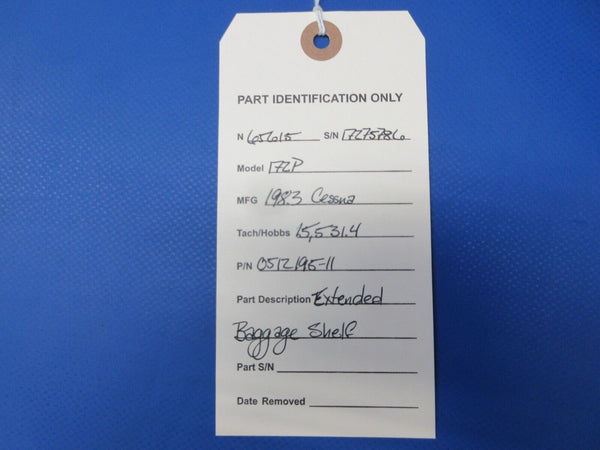 PART IDENTIFICATION ONLY
N 65615 S/N 17275786
Model 172P
MFG 1983 Cessna
Tach/Hobbs 15,531.4
P/N 0512195-11
Part Description Extended
Baggage Shelf
Part S/N
Date Removed